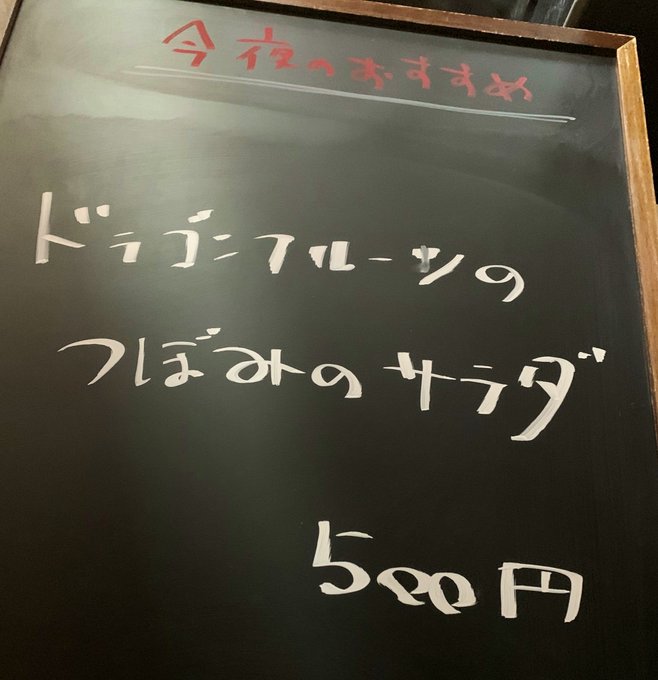 今夜のおすすめ
ドラゴンフルーツの
つぼみのサラダ
500円